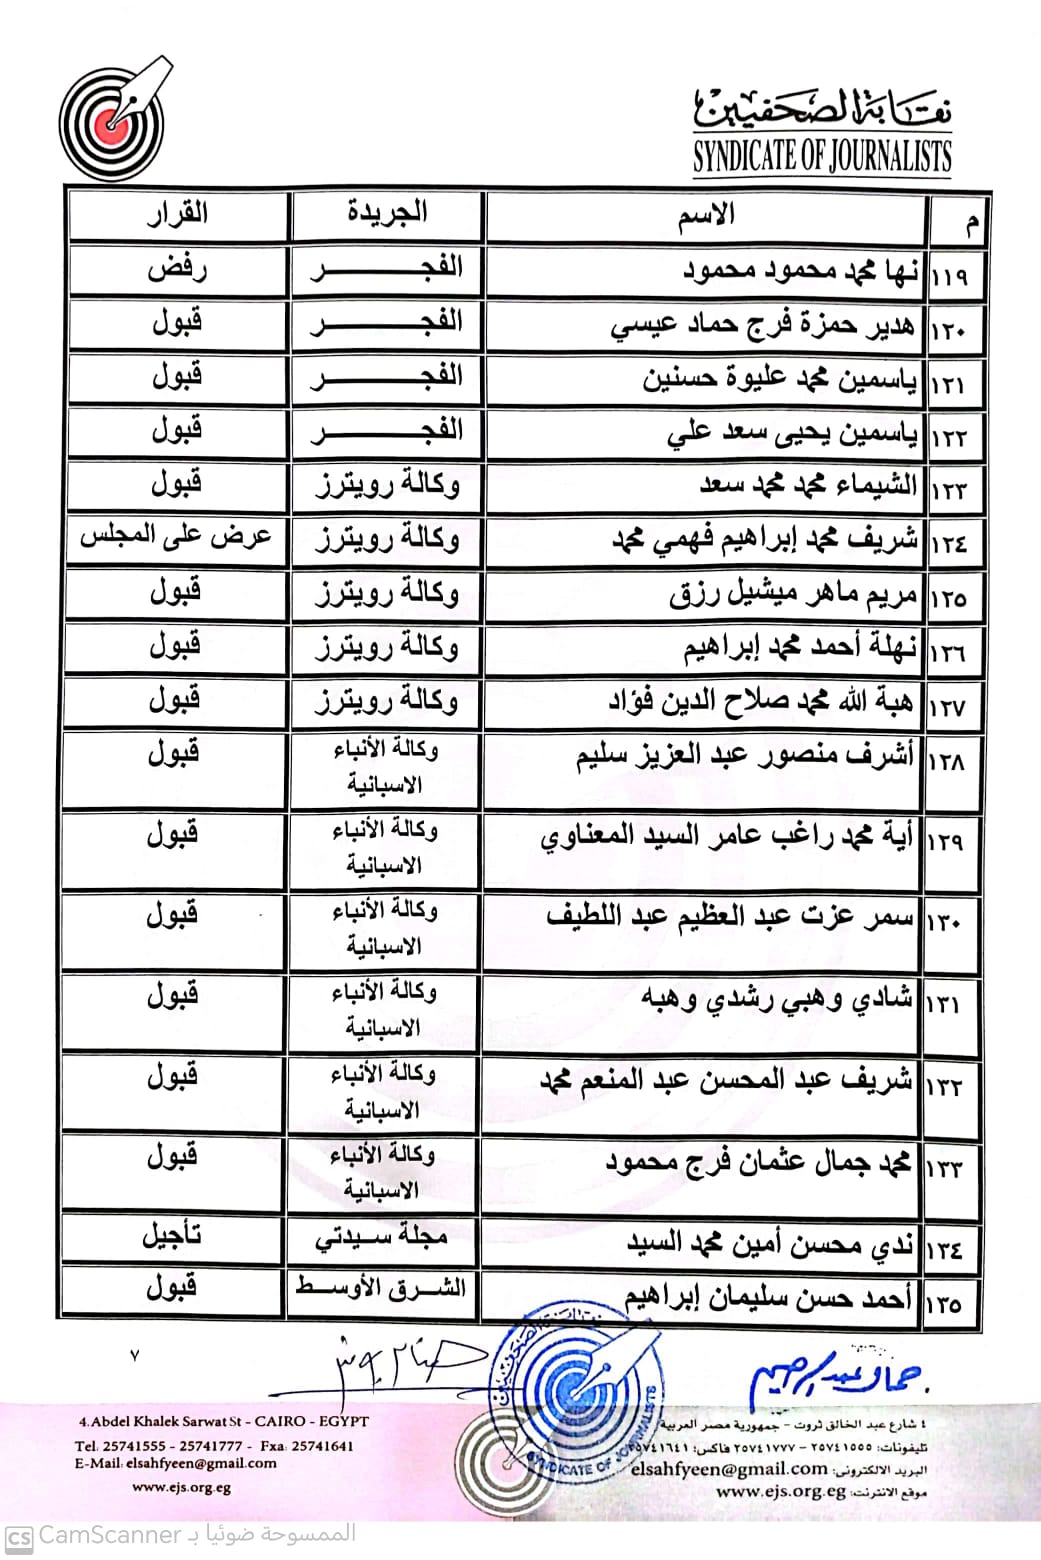 نقابة الصحفيين
SYNDICATE OF JOURNALISTS
م الاسم الجريدة القرار
١١٩ نها محمد محمود محمود الفجـــــــر رفض
١٢٠ هدير حمزة فرج حماد عيسي الفجـــــــر قبول
١٢١ ياسمين محمد عليوة حسنين الفجـــــــر قبول
١٢٢ ياسمين يحيى سعد علي الفجـــــــر قبول
١٢٣ الشيماء محمد محمد سعد وكالة رويترز قبول
١٢٤ شريف محمد إبراهيم فهمي محمد وكالة رويترز عرض على المجلس
١٢٥ مريم ماهر ميشيل رزق وكالة رويترز قبول
١٢٦ نهلة أحمد محمد إبراهيم وكالة رويترز قبول
١٢٧ هبة الله محمد صلاح الدين فؤاد وكالة رويترز قبول
١٢٨ أشرف منصور عبد العزيز سليم وكالة الأنباء قبول
الاسبانية
١٢٩ أية محمد راغب عامر السيد المعناوي وكالة الأنباء قبول
الاسبانية
١٣٠ سمر عزت عبد العظيم عبد اللطيف وكالة الأنباء قبول
الاسبانية
١٣١ شادي وهبي رشدي وهبه وكالة الأنباء قبول
الاسبانية
١٣٢ شريف عبد المحسن عبد المنعم محمد وكالة الأنباء قبول
الاسبانية
١٣٣ محمد جمال عثمان فرج محمود وكالة الأنباء قبول
الاسبانية
١٣٤ ندي محسن أمين محمد السيد مجلة سـيدتي تأجيل
١٣٥ أحمد حسن سليمان إبراهيم الشـرق الأوسـط قبول
٧
جمال عبد الرحيم
نقابة الصحفيين
SYNDICATE OF JOURNALISTS
٤ شارع عبد الخالق ثروت - جمهورية مصر العربية
تليفونات: ٢٥٧٤١٥٥٥ - ٢٥٧٤١٧٧٧ فاكس: ٢٥٧٤١٦٤١
البريد الالكترونى: elsahfyeen@gmail.com
موقع الانترنت: www.ejs.org.eg
4.Abdel Khalek Sarwat St - CAIRO - EGYPT
Tel: 25741555 - 25741777 - Fxa: 25741641
E-Mail: elsahfyeen@gmail.com
www.ejs.org.eg
CS CamScanner الممسوحة ضوئيا بـ